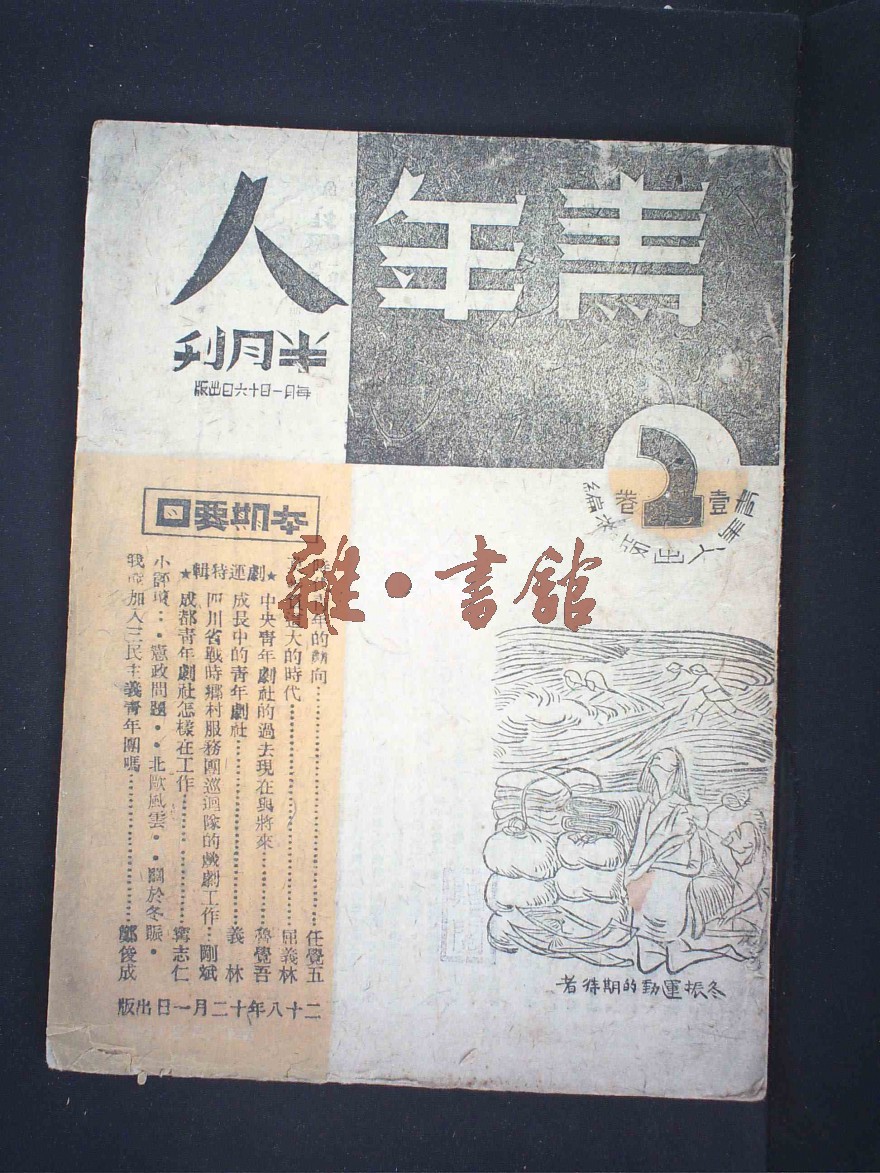 青年人
半月刊
每月一日十六日出版
壹卷
本期要目
年的動向……任覺五
大的時代……屈義林
★劇運特輯★
中央青年劇社的過去現在與將來……魯覺吾
成長中的青年劇社……義林
四川省戰時鄉村服務團巡迴隊的戲劇工作…剛斌
成都青年劇社怎樣在工作……志仁
小評壇:憲政問題·北歐風雲·關於冬賑·
我應加入三民主義青年團嗎……鄭俊成
二十八年十二月一日出版
冬振運動的期待者
雜·書館